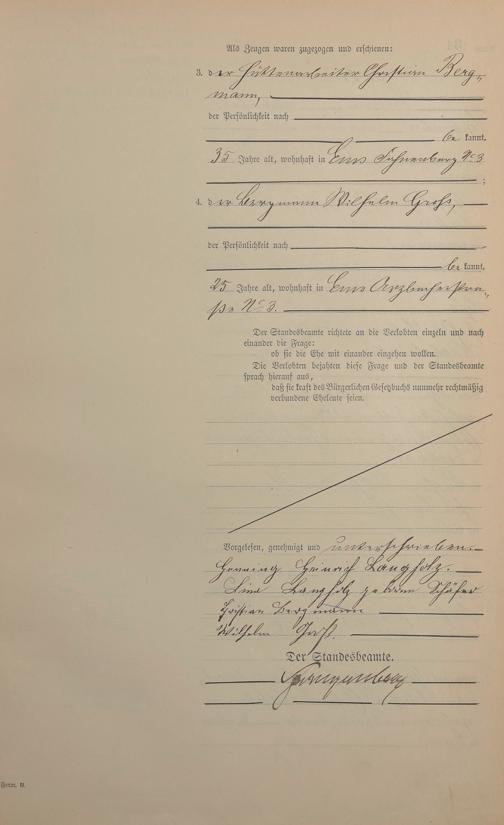 Als Zeugen waren zugezogen und erschienen:
3. der Hüttenarbeiter Christian Berg-
mann,
der Persönlichkeit nach
be kannt,
35 Jahre alt, wohnhaft in Ems No 3
;
4. der Bergmann Wilhelm Groß,
der Persönlichkeit nach
be kannt,
25 Jahre alt, wohnhaft in Ems Arzbacherstra-
ße No 3.
Der Standesbeamte richtete an die Verlobten einzeln und nach
einander die Frage:
ob sie die Ehe mit einander eingehen wollen.
Die Verlobten bejahten diese Frage und der Standesbeamte
sprach hierauf aus,
daß sie kraft des Bürgerlichen Gesetzbuchs nunmehr rechtmäßig
verbundene Eheleute seien.
Vorgelesen, genehmigt und unterschrieben.
Henning Heinrich Langholz.
Lina Langholz geborene Schäfer
Christian Bergmann
Wilhelm Groß.
Der Standesbeamte.
Form. B.